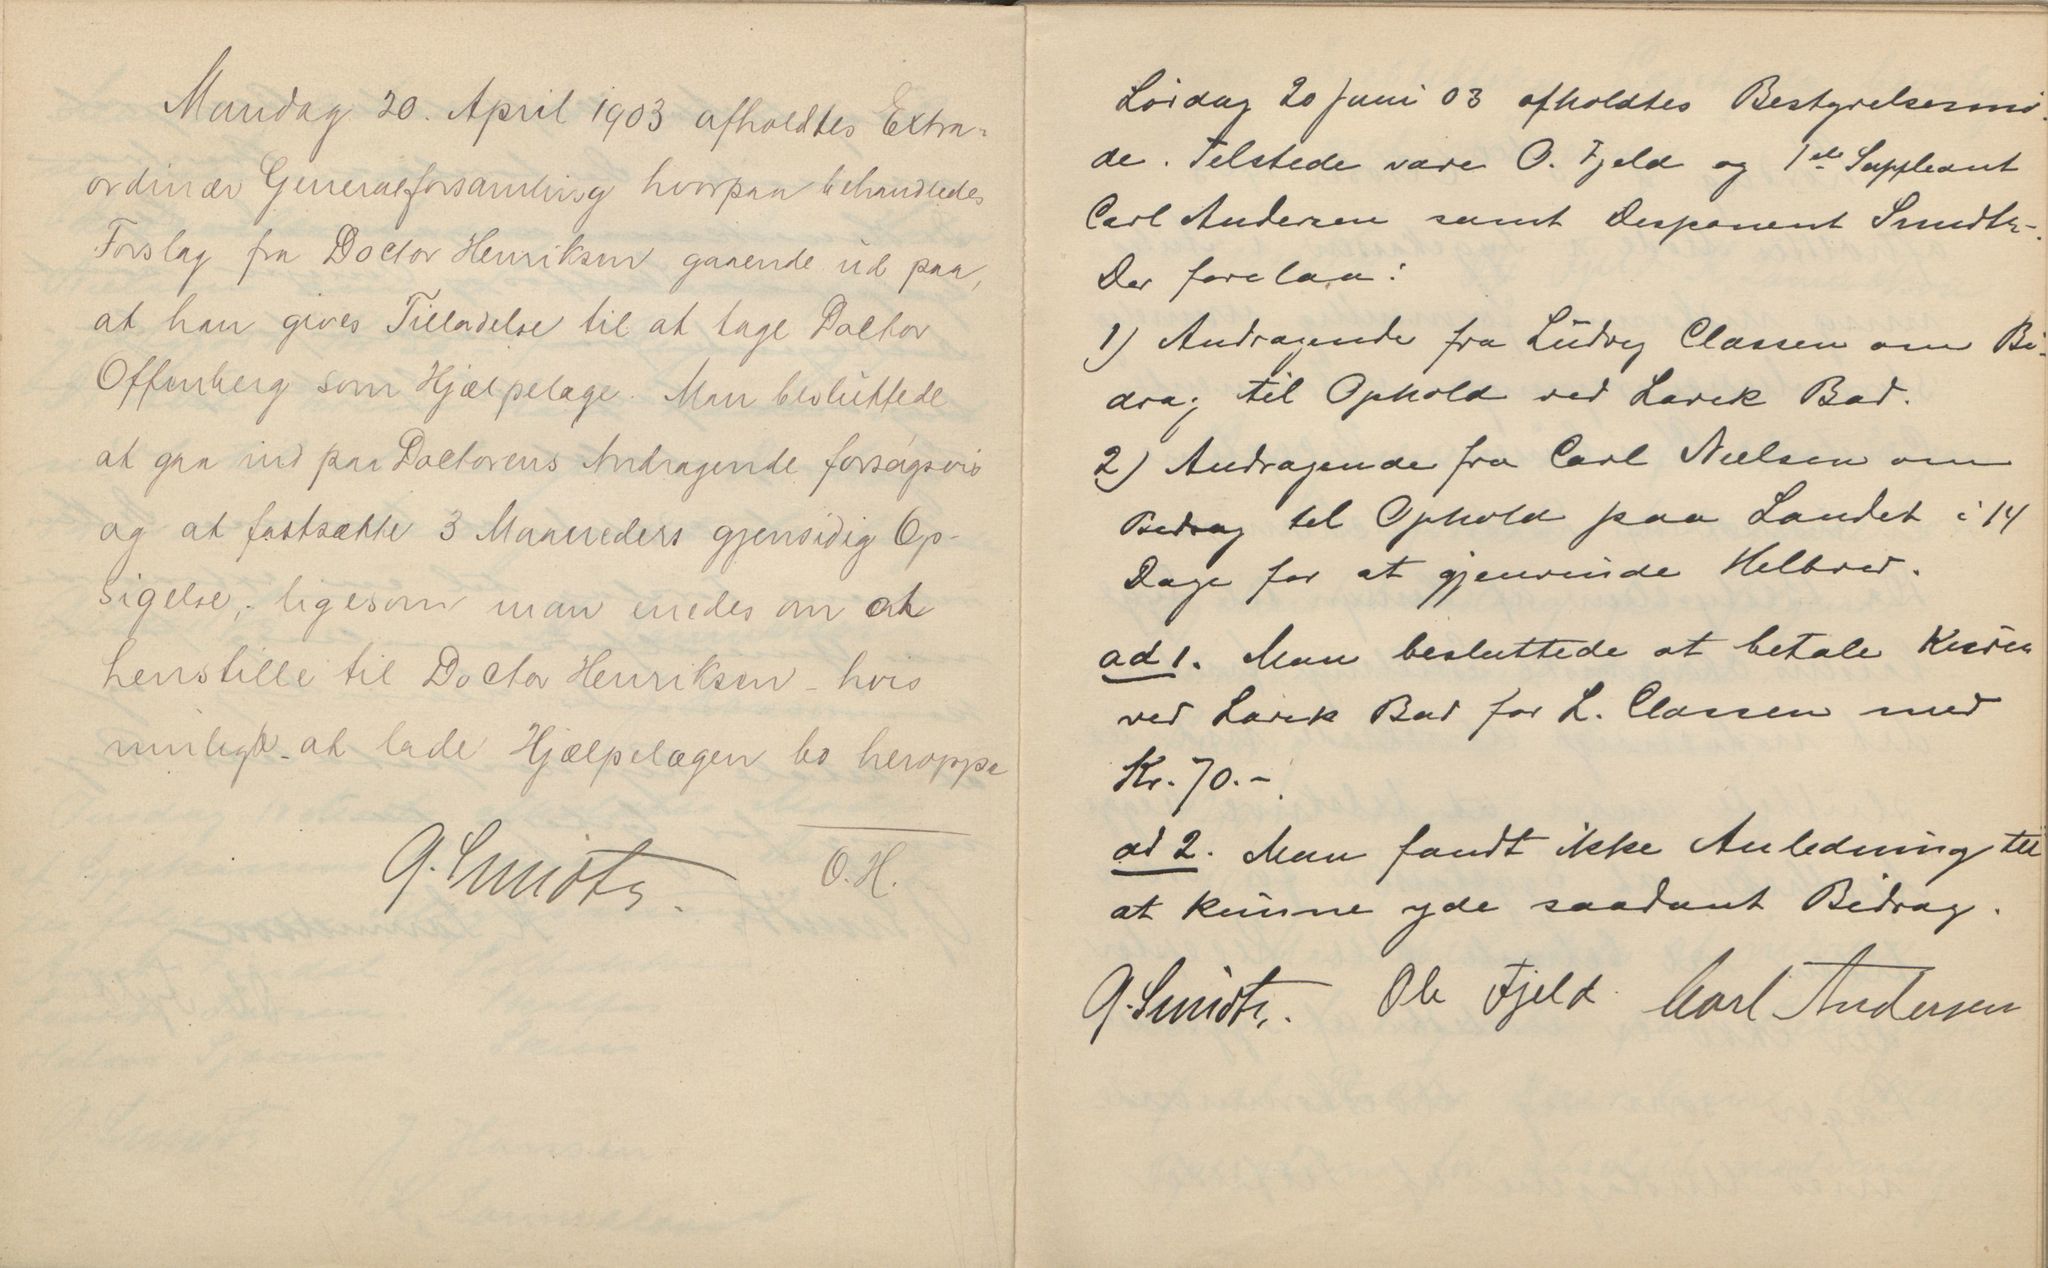 Mandag 20. April 1903 afholdtes Extra-
ordinær Generalforsamling hvorpaa behandledes
Forslag fra Doctor Henriksen gaaende ud paa,
at han gives Tilladelse til at tage Doctor
Offenberg som Hjælpelæge. Man besluttede
at gaa ind paa Doctorens Andragende forsøgsvis
og at fastsætte 3 Maaneders gjensidig Op-
sigelse, ligesom man enedes om at
henstille til Doctor Henriksen - hvis
muligt - at lade Hjælpelægen bo heroppe
G. Smidth.
O.H.
Lørdag 20 Juni 03 afholdtes Bestyrelsesmø-
de. Tilstede vare O. Fjeld og 1ste Suppleant
Carl Andersen samt Disponent Smidth.
Der forelaa:
1) Andragende fra Ludvig Classen om Bi-
drag til Ophold ved Larvik Bad.
2) Andragende fra Carl Nielsen om
Bidrag til Ophold paa Landet i 14
Dage for at gjenvinde Helbred.
ad 1. Man besluttede at betale Kuren
ved Larvik Bad for L. Classen med
Kr. 70.-
ad 2. Man fandt ikke Anledning til
at kunne yde saadant Bidrag.
G. Smidth. Ole Fjeld. Carl Andersen